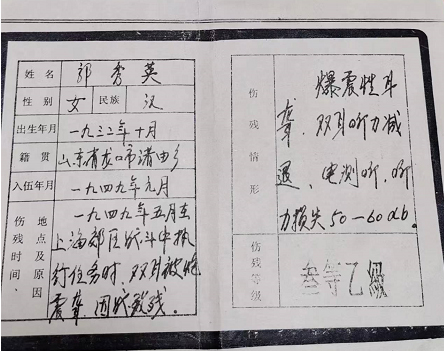 姓名 郭秀英
性别 女 民族 汉
出生年月 一九三二年十月
籍贯 山东省龙口市诸由乡
入伍年月 一九四九年元月
伤残时间、地点及原因
一九四九年五月在
上海郊区战斗中执
行任务时,双耳被炮
震聋,因战致残。
伤残情形
爆震性耳
聋,双耳听力减
退,电测听,听
力损失50—60db。
伤残等级 叁等乙级